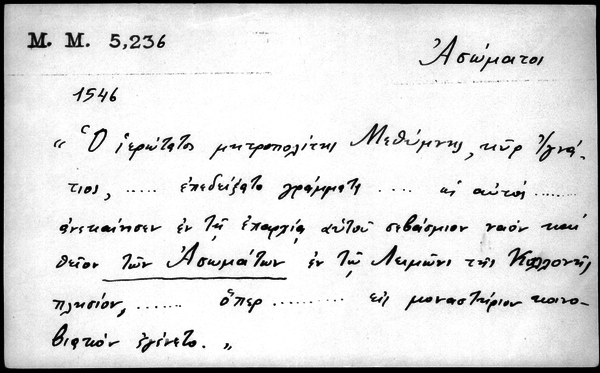 M. M. 5,236
Ἀσώματοι
1546
" Ὁ ἱερώτατος μητροπολίτης Μεθύμνης, κῦρ Ἰγνά-
τιος, ..... ἐπεδείξατο γράμματα .... ὡς αὐτός ......
ἀνεκαίνησεν ἐν τῇ ἐπαρχίᾳ αὐτοῦ σεβάσμιον ναόν καί
θεῖον τῶν Ἀσωμάτων ἐν τῷ Λειμῶνι τῆς Καλλονῆς
πλησίον, ...... ὅπερ ......... εἰς μοναστήριον κοινο-
βιακόν ἐγένετο. "